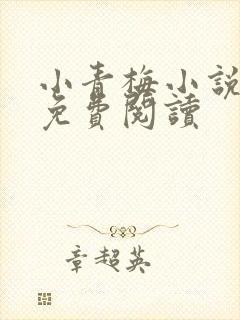 小青梅小說
免費閱讀
章超英